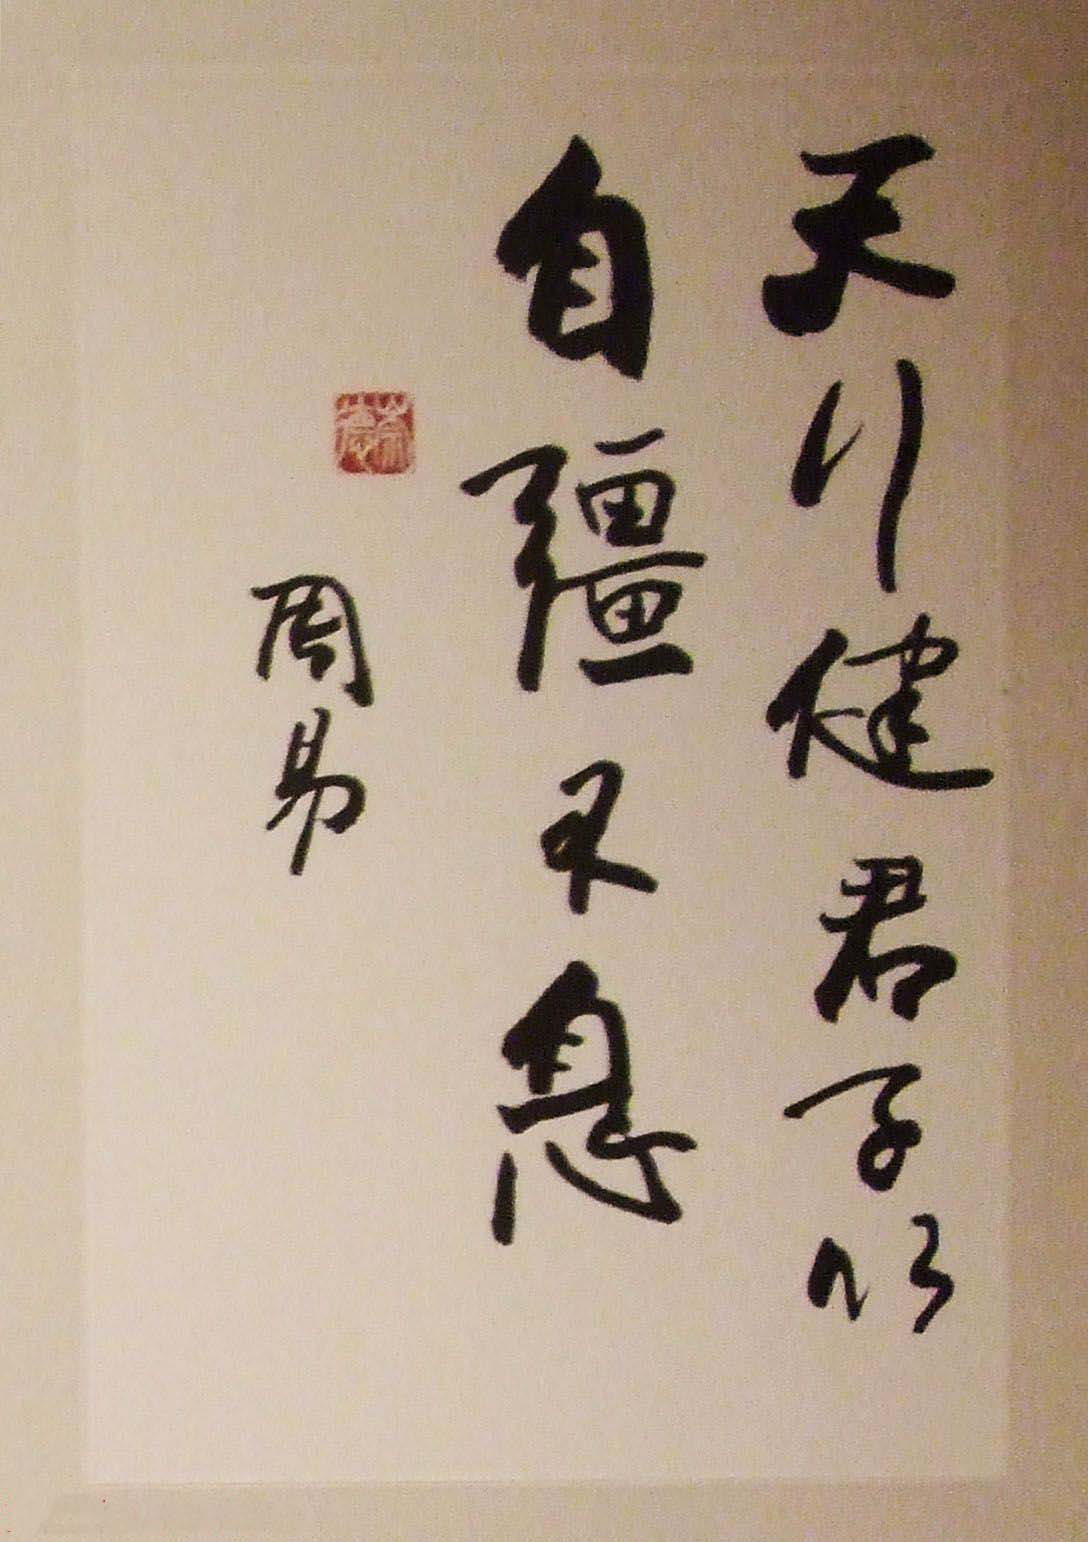 天行健君子以
自彊不息
周易